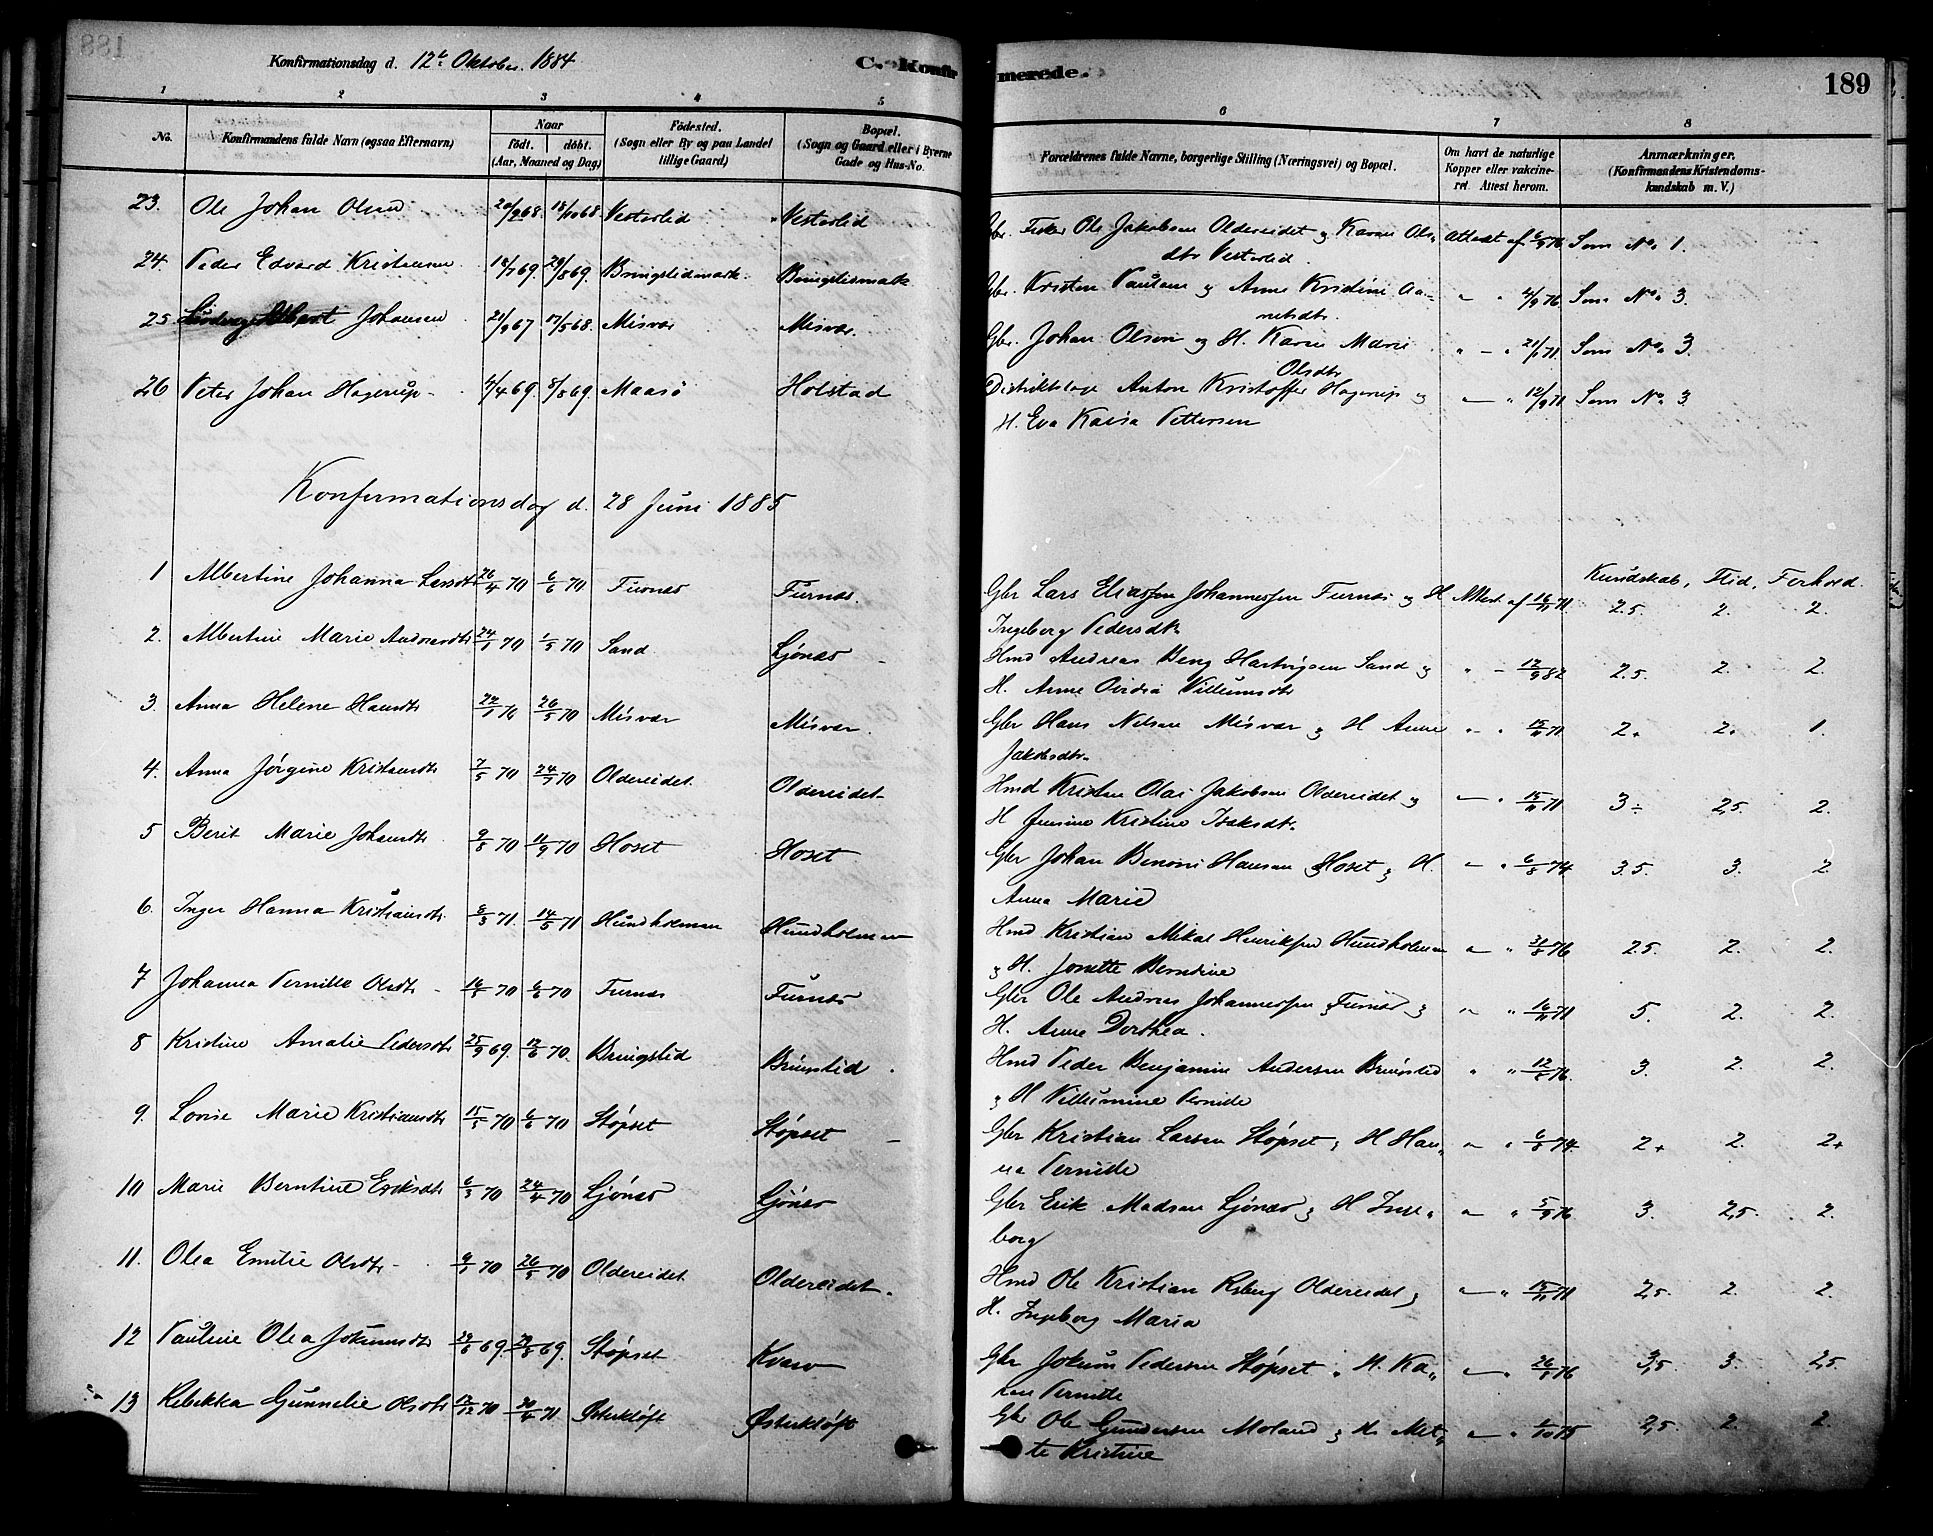 188
Konfirmationsdag d. 12te Oktober 1884
C. Konfirmerede.
189
1 2 3 4 5 6 7 8
No. Konfirmandens fulde Navn (ogsaa Efternavn) Naar født. døbt. (Aar, Maaned og Dag) Fødested. (Sogn eller By og paa Landet tillige Gaard) Bopæl. (Sogn og Gaard eller i Byerne Gade og Hus-No. Forældrenes fulde Navne, borgerlige Stilling (Næringsvei) og Bopæl. Om havt de naturlige Kopper eller vakcineret. Attest herom. Anmærkninger. (Konfirmandens Kristendomskundskab m. V.)
23. Ole Johan Olsen 20/9 68. 18/10 68 Vesterlid Vesterlid Gbr. Fisker Ole Jakobsen Oldereidet og Karen Ols-
dtr Vesterlid. Attest af 6/9 76 Som No. 1.
24. Peder Edvard Kristensen 18/7 69. 29/8 69. Bringslidmark. Bringslidmark Gbr. Kristen Paulsen og Anne Kristine Aa-
netsdtr. " " 4/9 76 Som No. 3.
25 Johansen 21/9 67 17/5 68. Misvær Misvær. Gbr. Johan Olsen og H. Karen Marie
Olsdtr " - " 21/1 71. Som No. 3.
26 Peter Johan Hagerup 4/4 69. 8/8 69. Maasø Holstad Distriktslæge Anton Kristoffer Hagerup og
H. Eva Kaisa Pettersen " 12/9 71 Som No. 3
Konfirmationsdag d. 28 Juni 1885
Kundskab, Flid, Forhold.
1 Albertine Johanna Larsdtr 26/4 70 6/6 70 Furnæs Furnæs. Gbr Lars Eliassen Johannessen Furnæs og H
Ingeborg Pedersdtr. Attest af 16/11 71 2.5. 2. 2.
2. Albertine Marie Andreasdtr 24/1 70 1/5 70 Sand Ljønæs Hmd Andreas Beng Hartvigsen Sand og
H. Anne Ovidia Villumsdtr " - 12/9 82 2.5. 2. 2
3. Anna Helene Hansdtr 22/1 70 26/5 70 Misvær Misvær. Gbr Hans Nilsen Misvær og H Anne
Jakobsdtr. " - " 15/11 71 2. 2. 1.
4. Anna Jørgine Kristensdtr 7/5 70 24/7 70 Oldereidet Oldereidet Hmd Kristen Olai Jakobsen Oldereidet og
H Jensine Kristine Isaksdtr. " 15/11 71 3÷ 2,5 2.
5 Berit Marie Johansdtr 9/8 70 11/9 70 Hoset Hoset Gbr Johan Benoni Hansen Hoset og H.
Anna Marie " 6/8 74 3.5. 3. 2
6. Inger Hanna Kristiansdtr 8/3 71. 14/5 71 Hundholmen Hundholmen Hmd Kristian Mikal Henriksen Hundholmen
og H. Jonette Berntine " 31/8 76 2.5. 2. 2.
7 Johanna Pernille Olsdtr 16/5 70 6/6 70 Furnæs Furnæs Gbr Ole Andreas Johannessen Furnæs og
H. Anne Dorthea. " 16/11 71 5. 2. 2.
8 Kristine Amalie Pedersdtr 25/9 69. 12/6 70. Bringslid Bringslid Hmd Peder Benjamin Andersen Bringslid
og H Villumine Pernille " " 12/6 76. 3. 2. 2.
9. Lovise Marie Kristiansdtr 15/5 70 6/6 70 Støpset Støpset Gbr Kristian Larsen Støpset og H Han-
na Pernille " 6/8 74. 2+ 2. 2+
10 Marie Berntine Eriksdtr 6/3 70 24/4 70 Ljønæs Ljønæs Gbr Erik Madsen Ljønæs og H Inge-
borg " 5/9 76 3. 2,5. 2.
11. Olea Emilie Olsdtr 9/1 70 26/5 70 Oldereidet Oldereidet. Hmd Ole Kristian Esberg Oldereidet og
H. Ingeborg Maria " 15/11 71 2,5. 2. 2.
12 Pauline Olea Jokumsdtr 24/6 69. 29/8 69. Støpset Kvarv Gbr Jokum Pedersen Støpset " H. Ka-
ren Pernille " 26/6 76 3,5 3. 2,5.
13 Rebekka Gunnelie Olsdtr 12/12 70 30/4 71 Østerkløft Østerkløft Gbr Ole Gundersen Moland og H. Met-
te Kristine " 1/10 75 2,5. 2. 2.